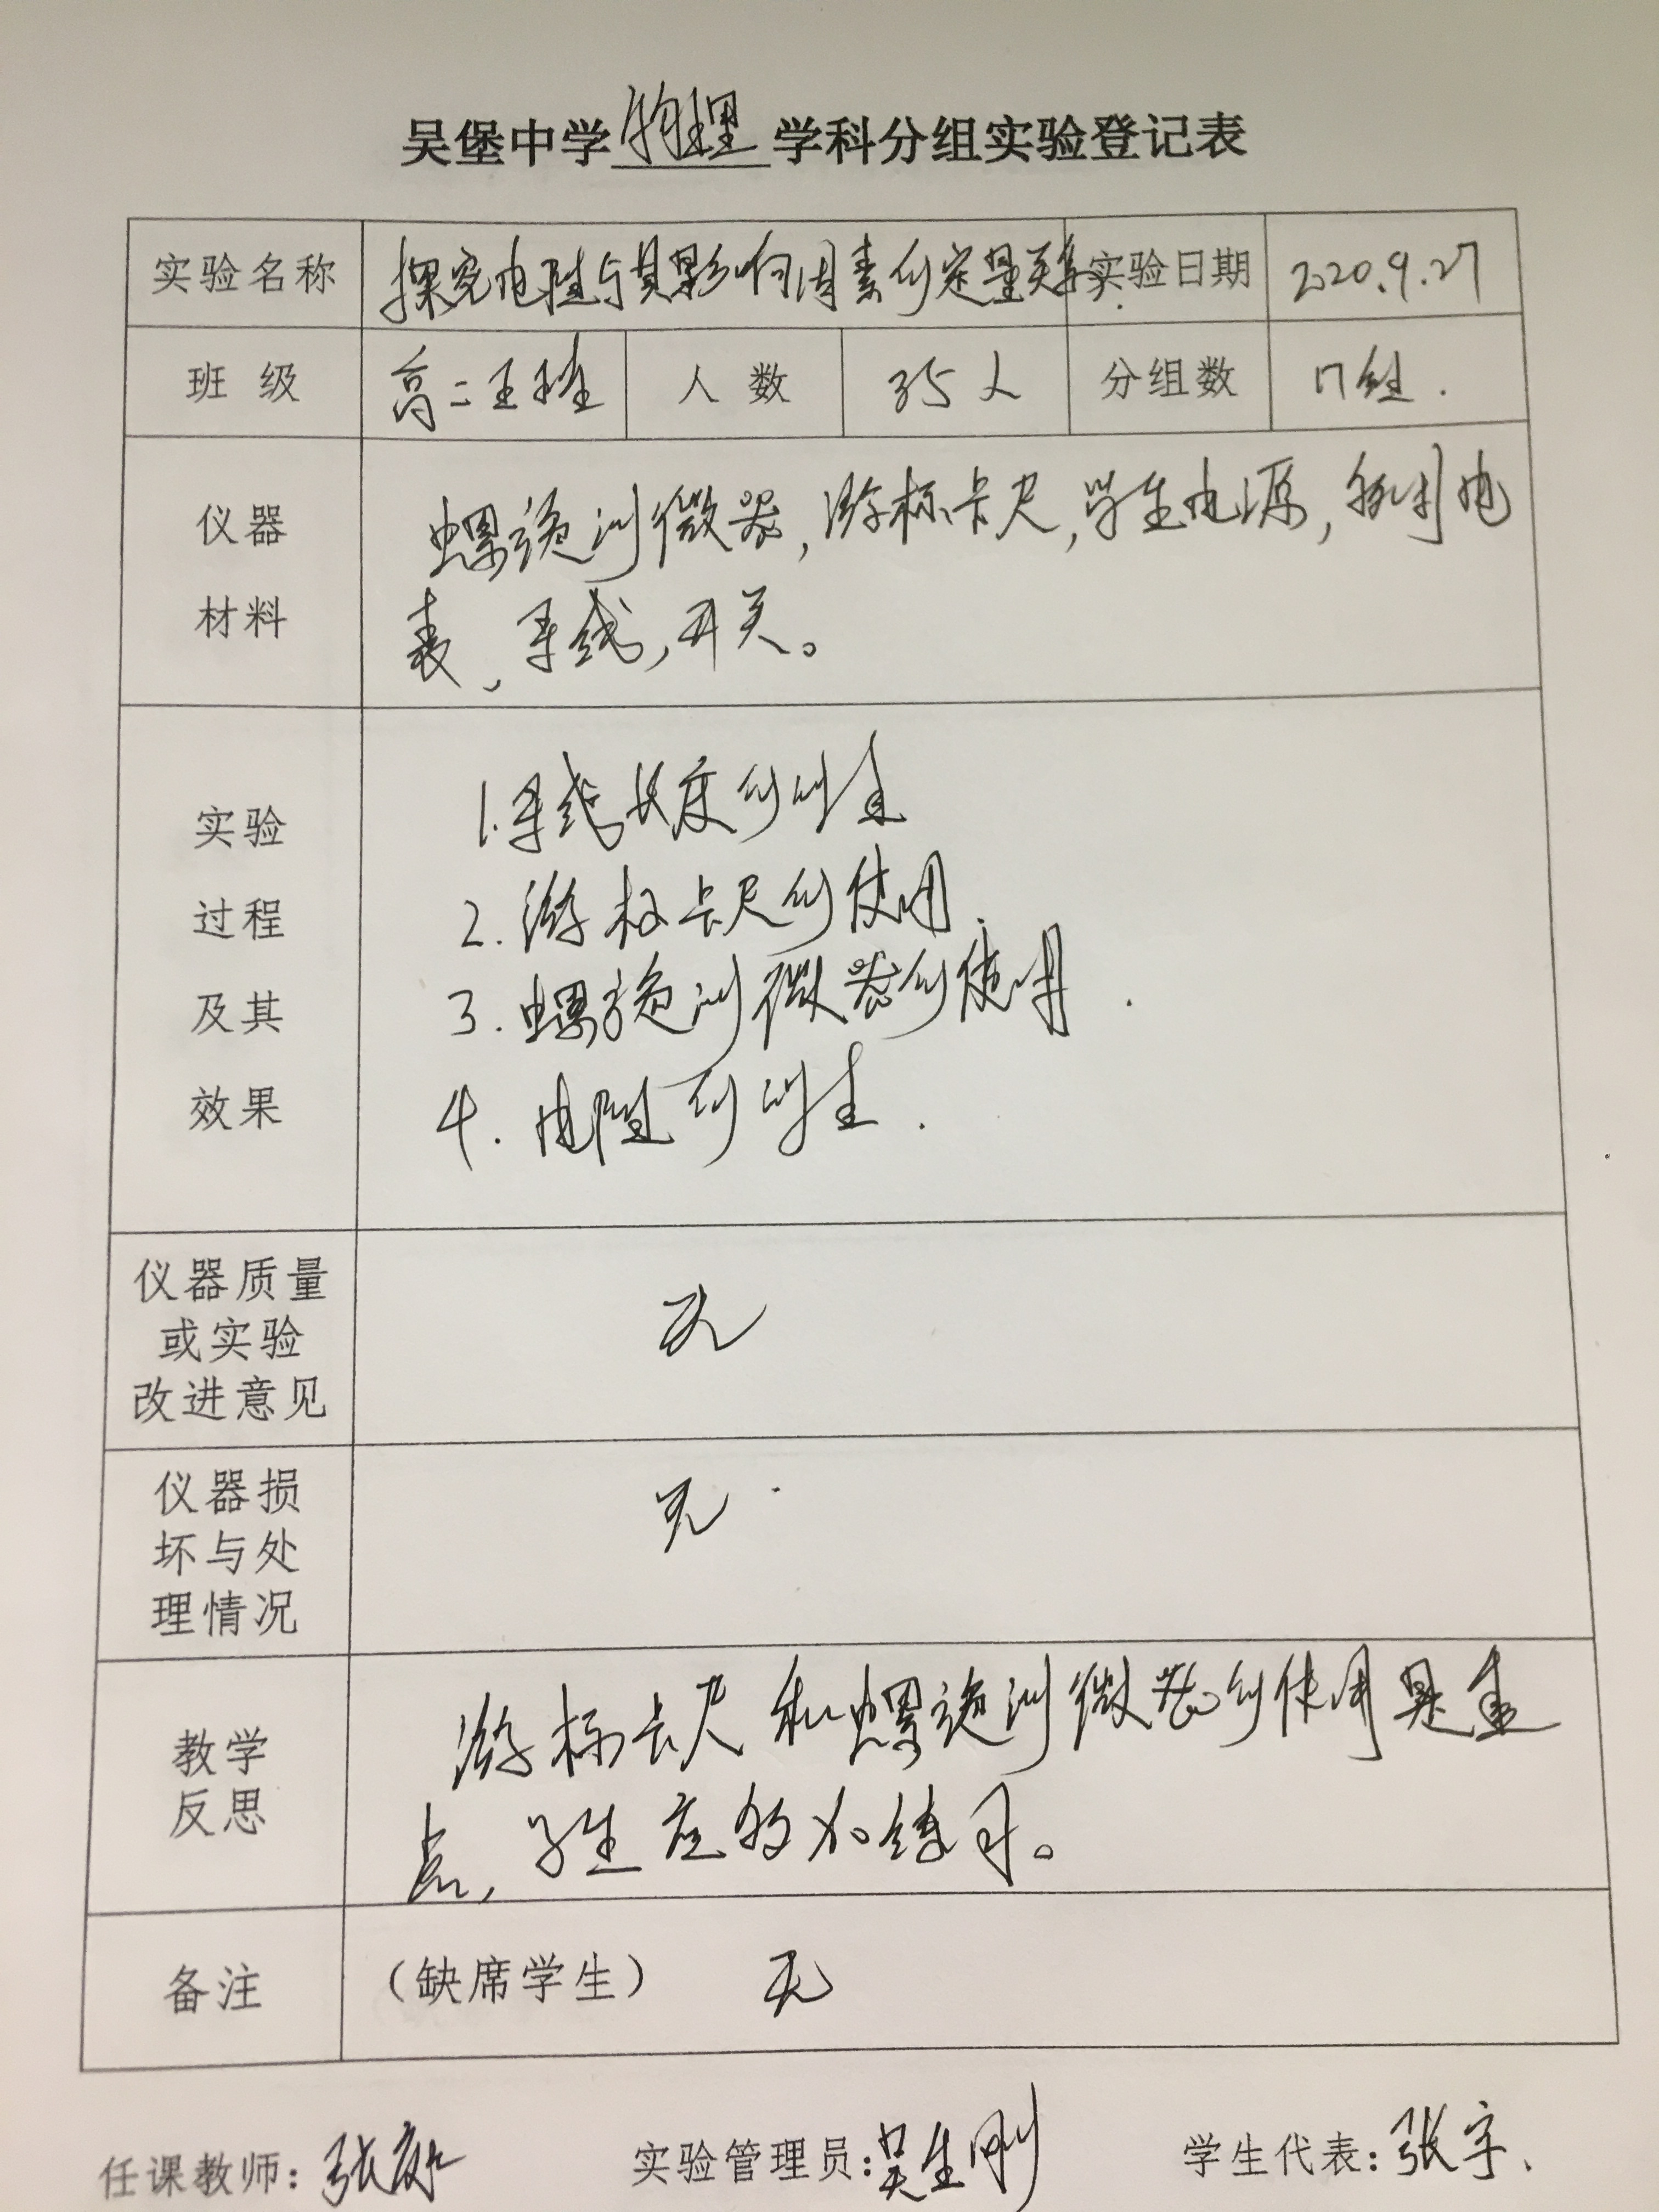 吴堡中学物理学科分组实验登记表
实验名称 探究电阻与其影响因素的定量关系 实验日期 2020.9.27
班级 高二王班 人数 35人 分组数 17组.
仪器材料 螺旋测微器,游标卡尺,学生电源,电
表、导线,开关。
实验过程及其效果 1.导线长度的测量
2.游标卡尺的使用.
3.螺旋测微器的使用.
4.电阻的测量.
仪器质量
或实验
改进意见 无
仪器损
坏与处
理情况 无.
教学反思 游标卡尺和螺旋测微器的使用是重
点,学生应多加练习。
备注 (缺席学生) 无
任课教师: 张 实验管理员: 吴生刚 学生代表: 张宇